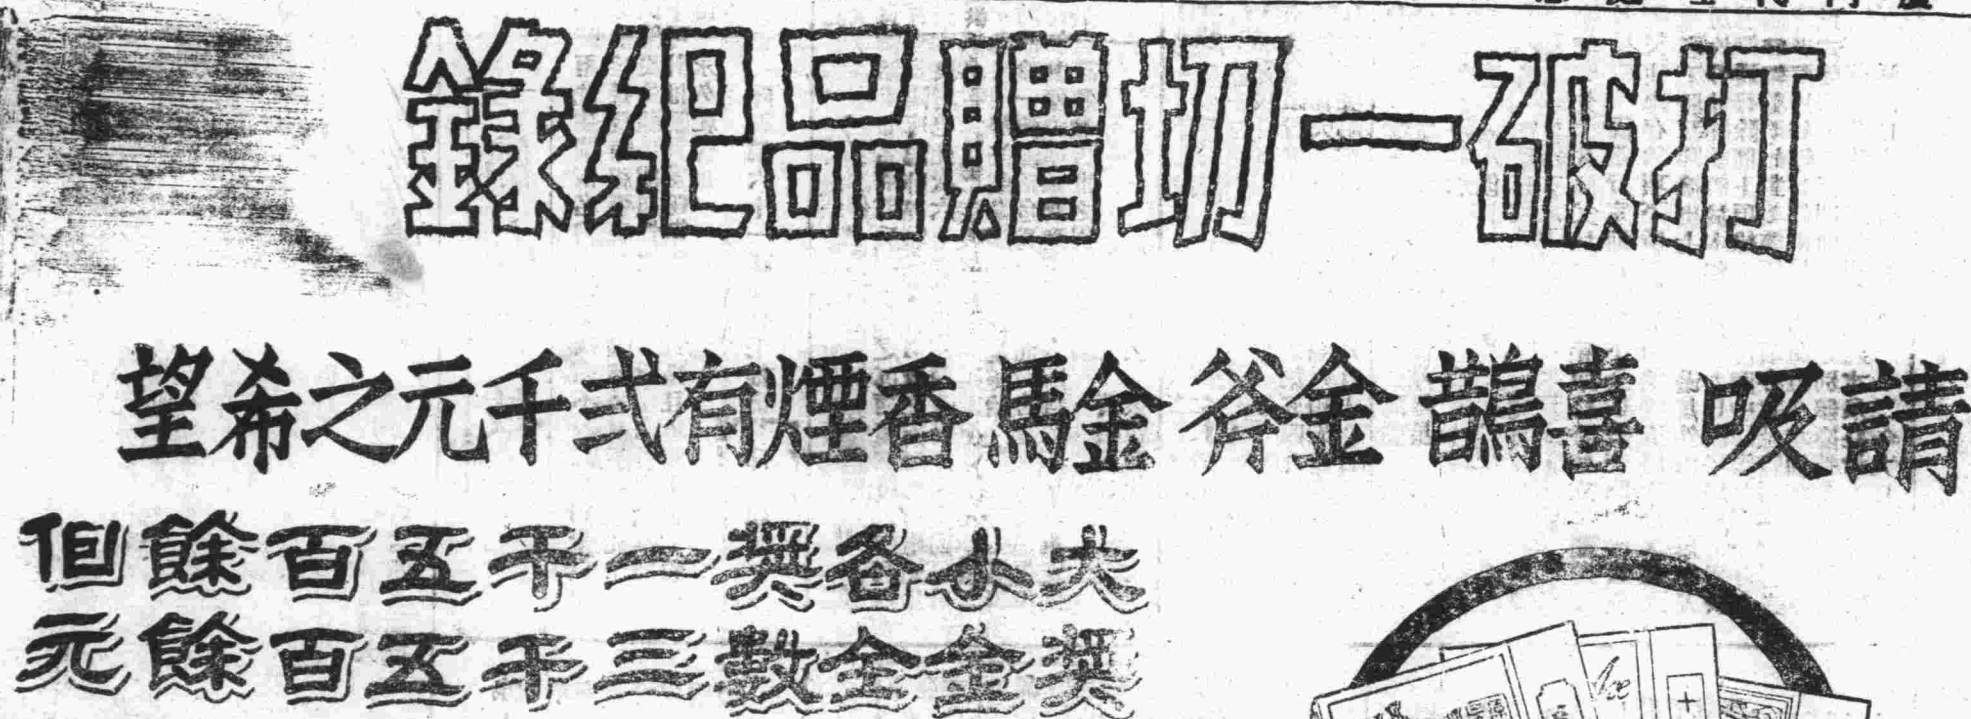 打破一切贈品紀錄
請吸喜鵲金斧金馬香煙有弍千元之希望
大小各奬一千五百餘個
奬金全數三千五百餘元